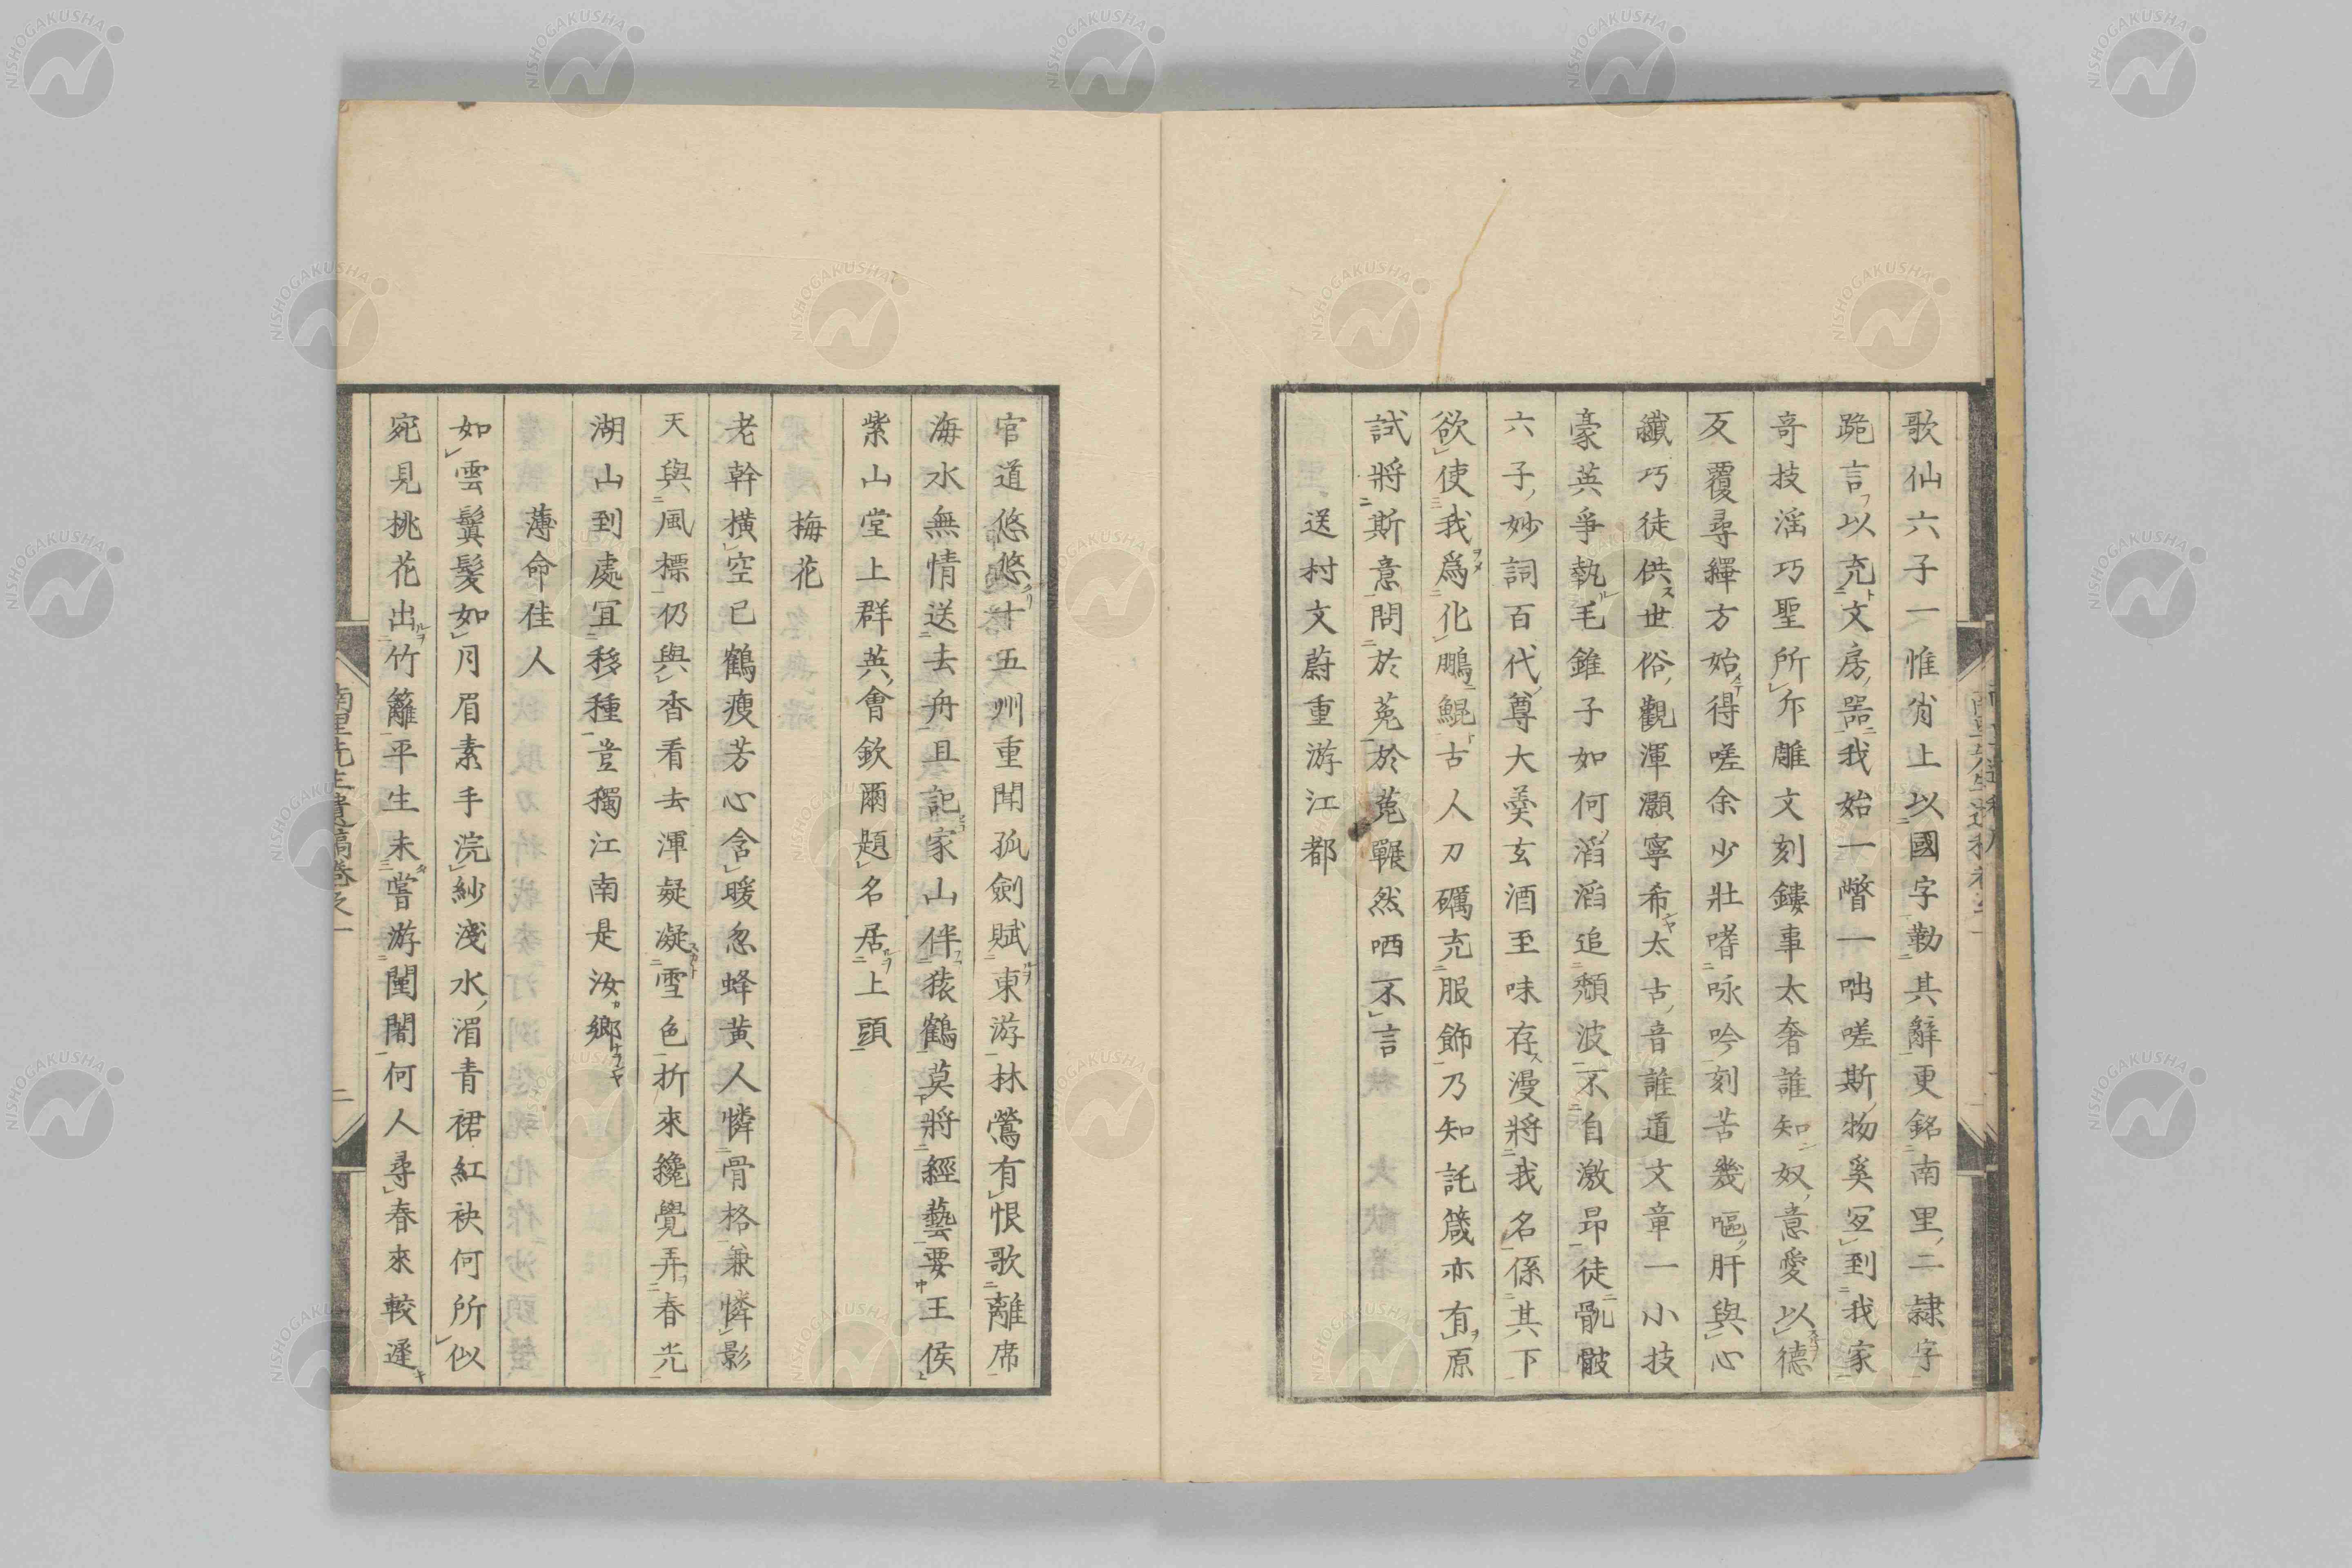 歌仙六子一惟肖上以國字勒其辭更銘南里二隷字
跪言以充文房噐我始一瞥一咄嗟斯物奚冝到我家
竒技滛巧聖所斥雕文刻鏤事太奢誰知奴意愛以德
反覆尋繹方始得嗟余少壯嗜咏吟刻苦幾嘔肝與心
纖巧徒供世俗觀渾灝寧希太古音誰道文章一小技
豪英爭執毛錐子如何滔滔追頽波不自激昂徒骩骳
六子妙詞百代尊大羹玄酒至味存漫將我名係其下
欲使我爲化鵬鯤古人刀礪充服飾乃知託箴亦有原
試將斯意問於菟於菟囅然哂不言
送村文蔚重游江都
官道悠悠十五州重聞孤劍賦東游林鶯有恨歌離席
海水無情送去舟且記家山伴猿鶴莫將經藝要王侯
紫山堂上群英會欽爾題名居上頭
梅花
老幹橫空已鶴瘦芳心含暖忽蜂黄人憐骨格兼憐影
天與風標仍與香看去渾疑凝雪色折來纔覺弄春光
湖山到處冝移種豈獨江南是汝鄉
薄命佳人
如雲鬒髮如月眉素手浣紗淺水湄青裙紅袂何所似
宛見桃花出竹籬平生未嘗游闉闍何人尋春來較遲
南里先生遺稿卷之一
二